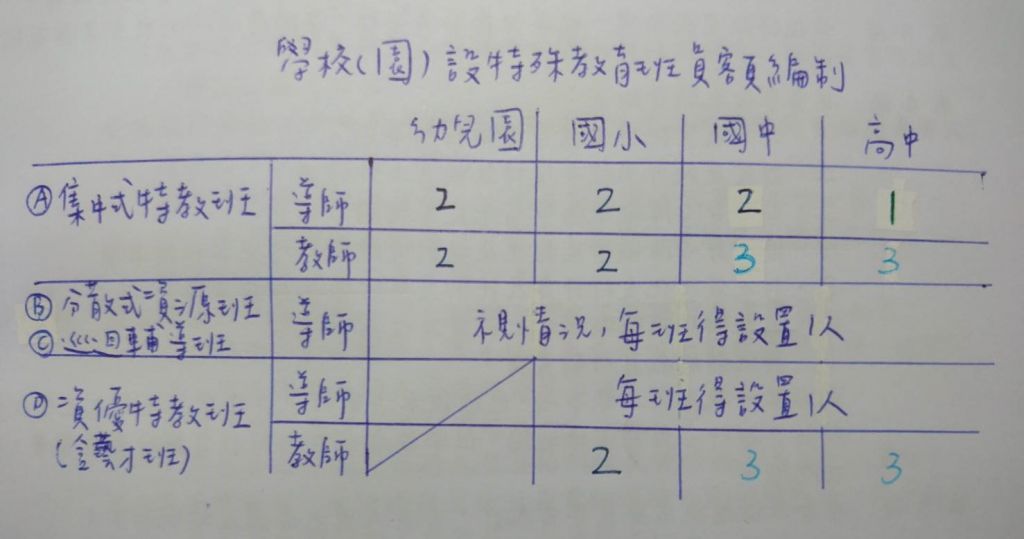 學校(園)設特殊教育班員額編制
幼兒園 國小 國中 高中
Ⓐ集中式特教班 導師 2 2 2 1
教師 2 2 3 3
Ⓑ分散式資源班 導師 視情況,每班得設置1人
Ⓒ巡迴輔導班
Ⓓ資優特教班 導師 每班得設置1人
(含藝才班) 教師 2 3 3